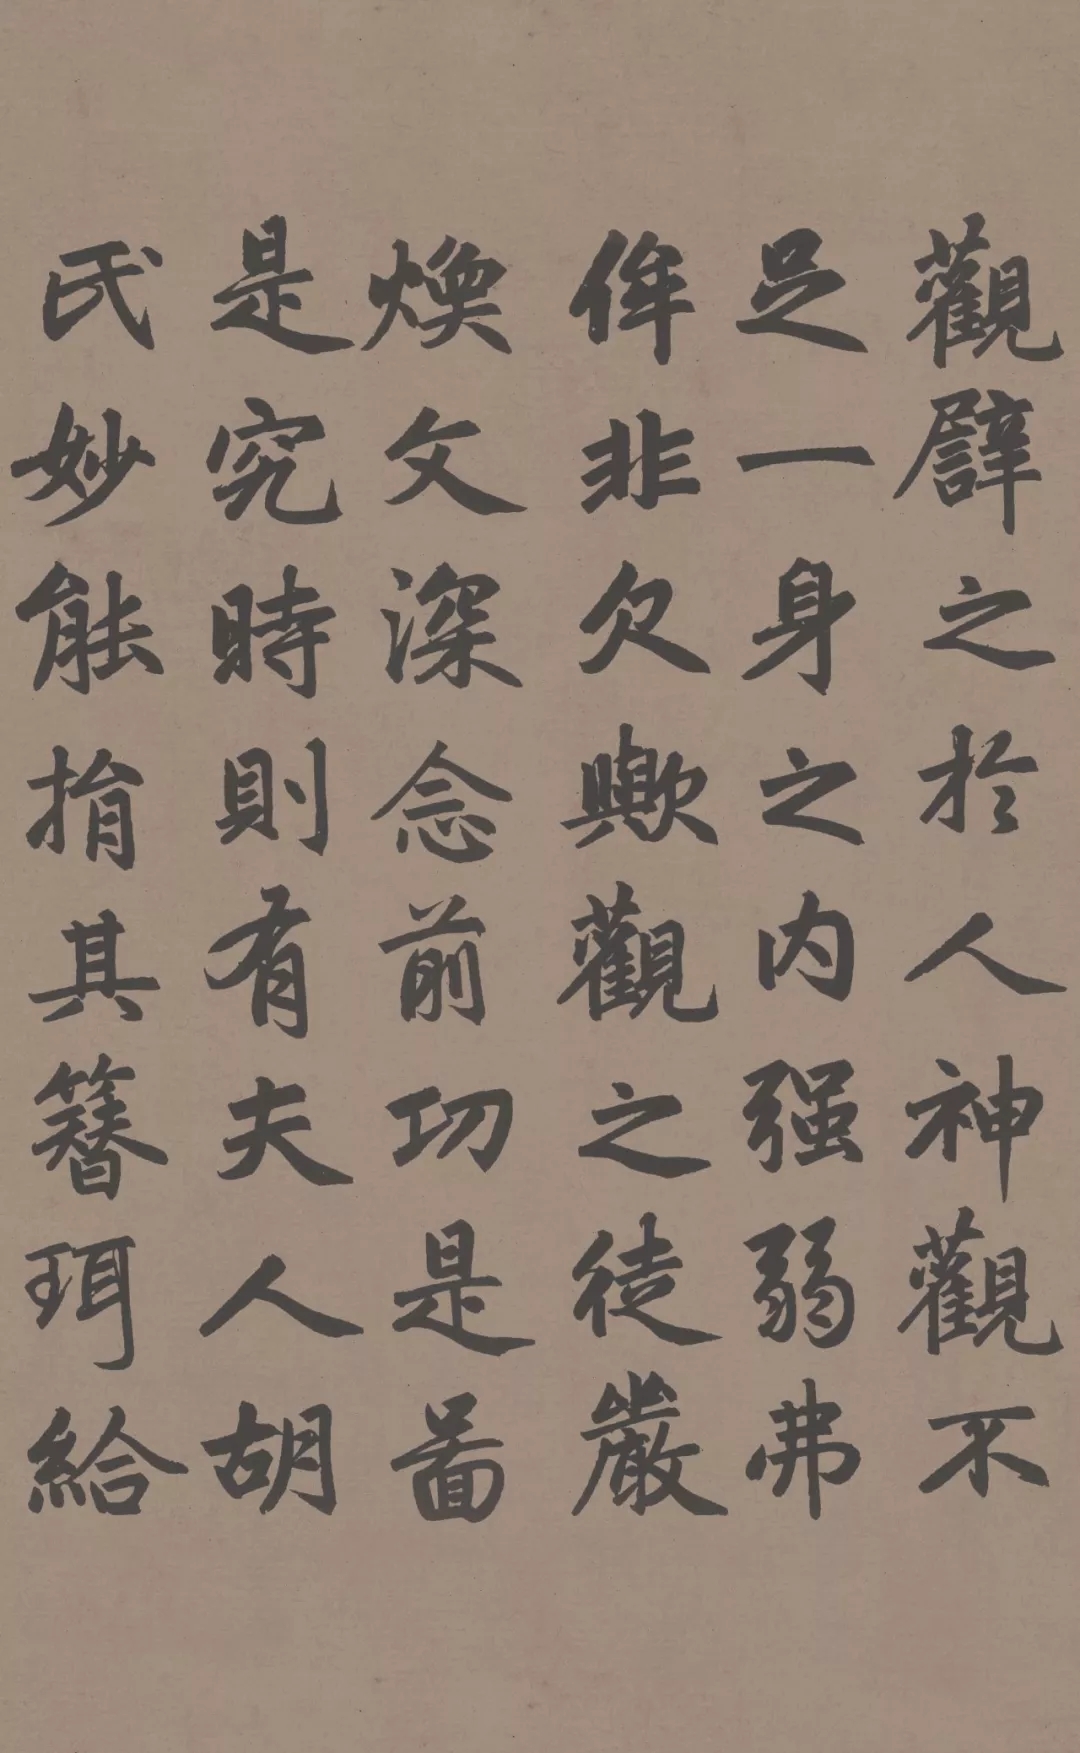 觀譬之於人神觀不
足一身之内强弱弗
侔非欠歟觀之徒嚴
煥文深念前功是啚
是究時則有夫人胡
氏妙能捐其簪珥給